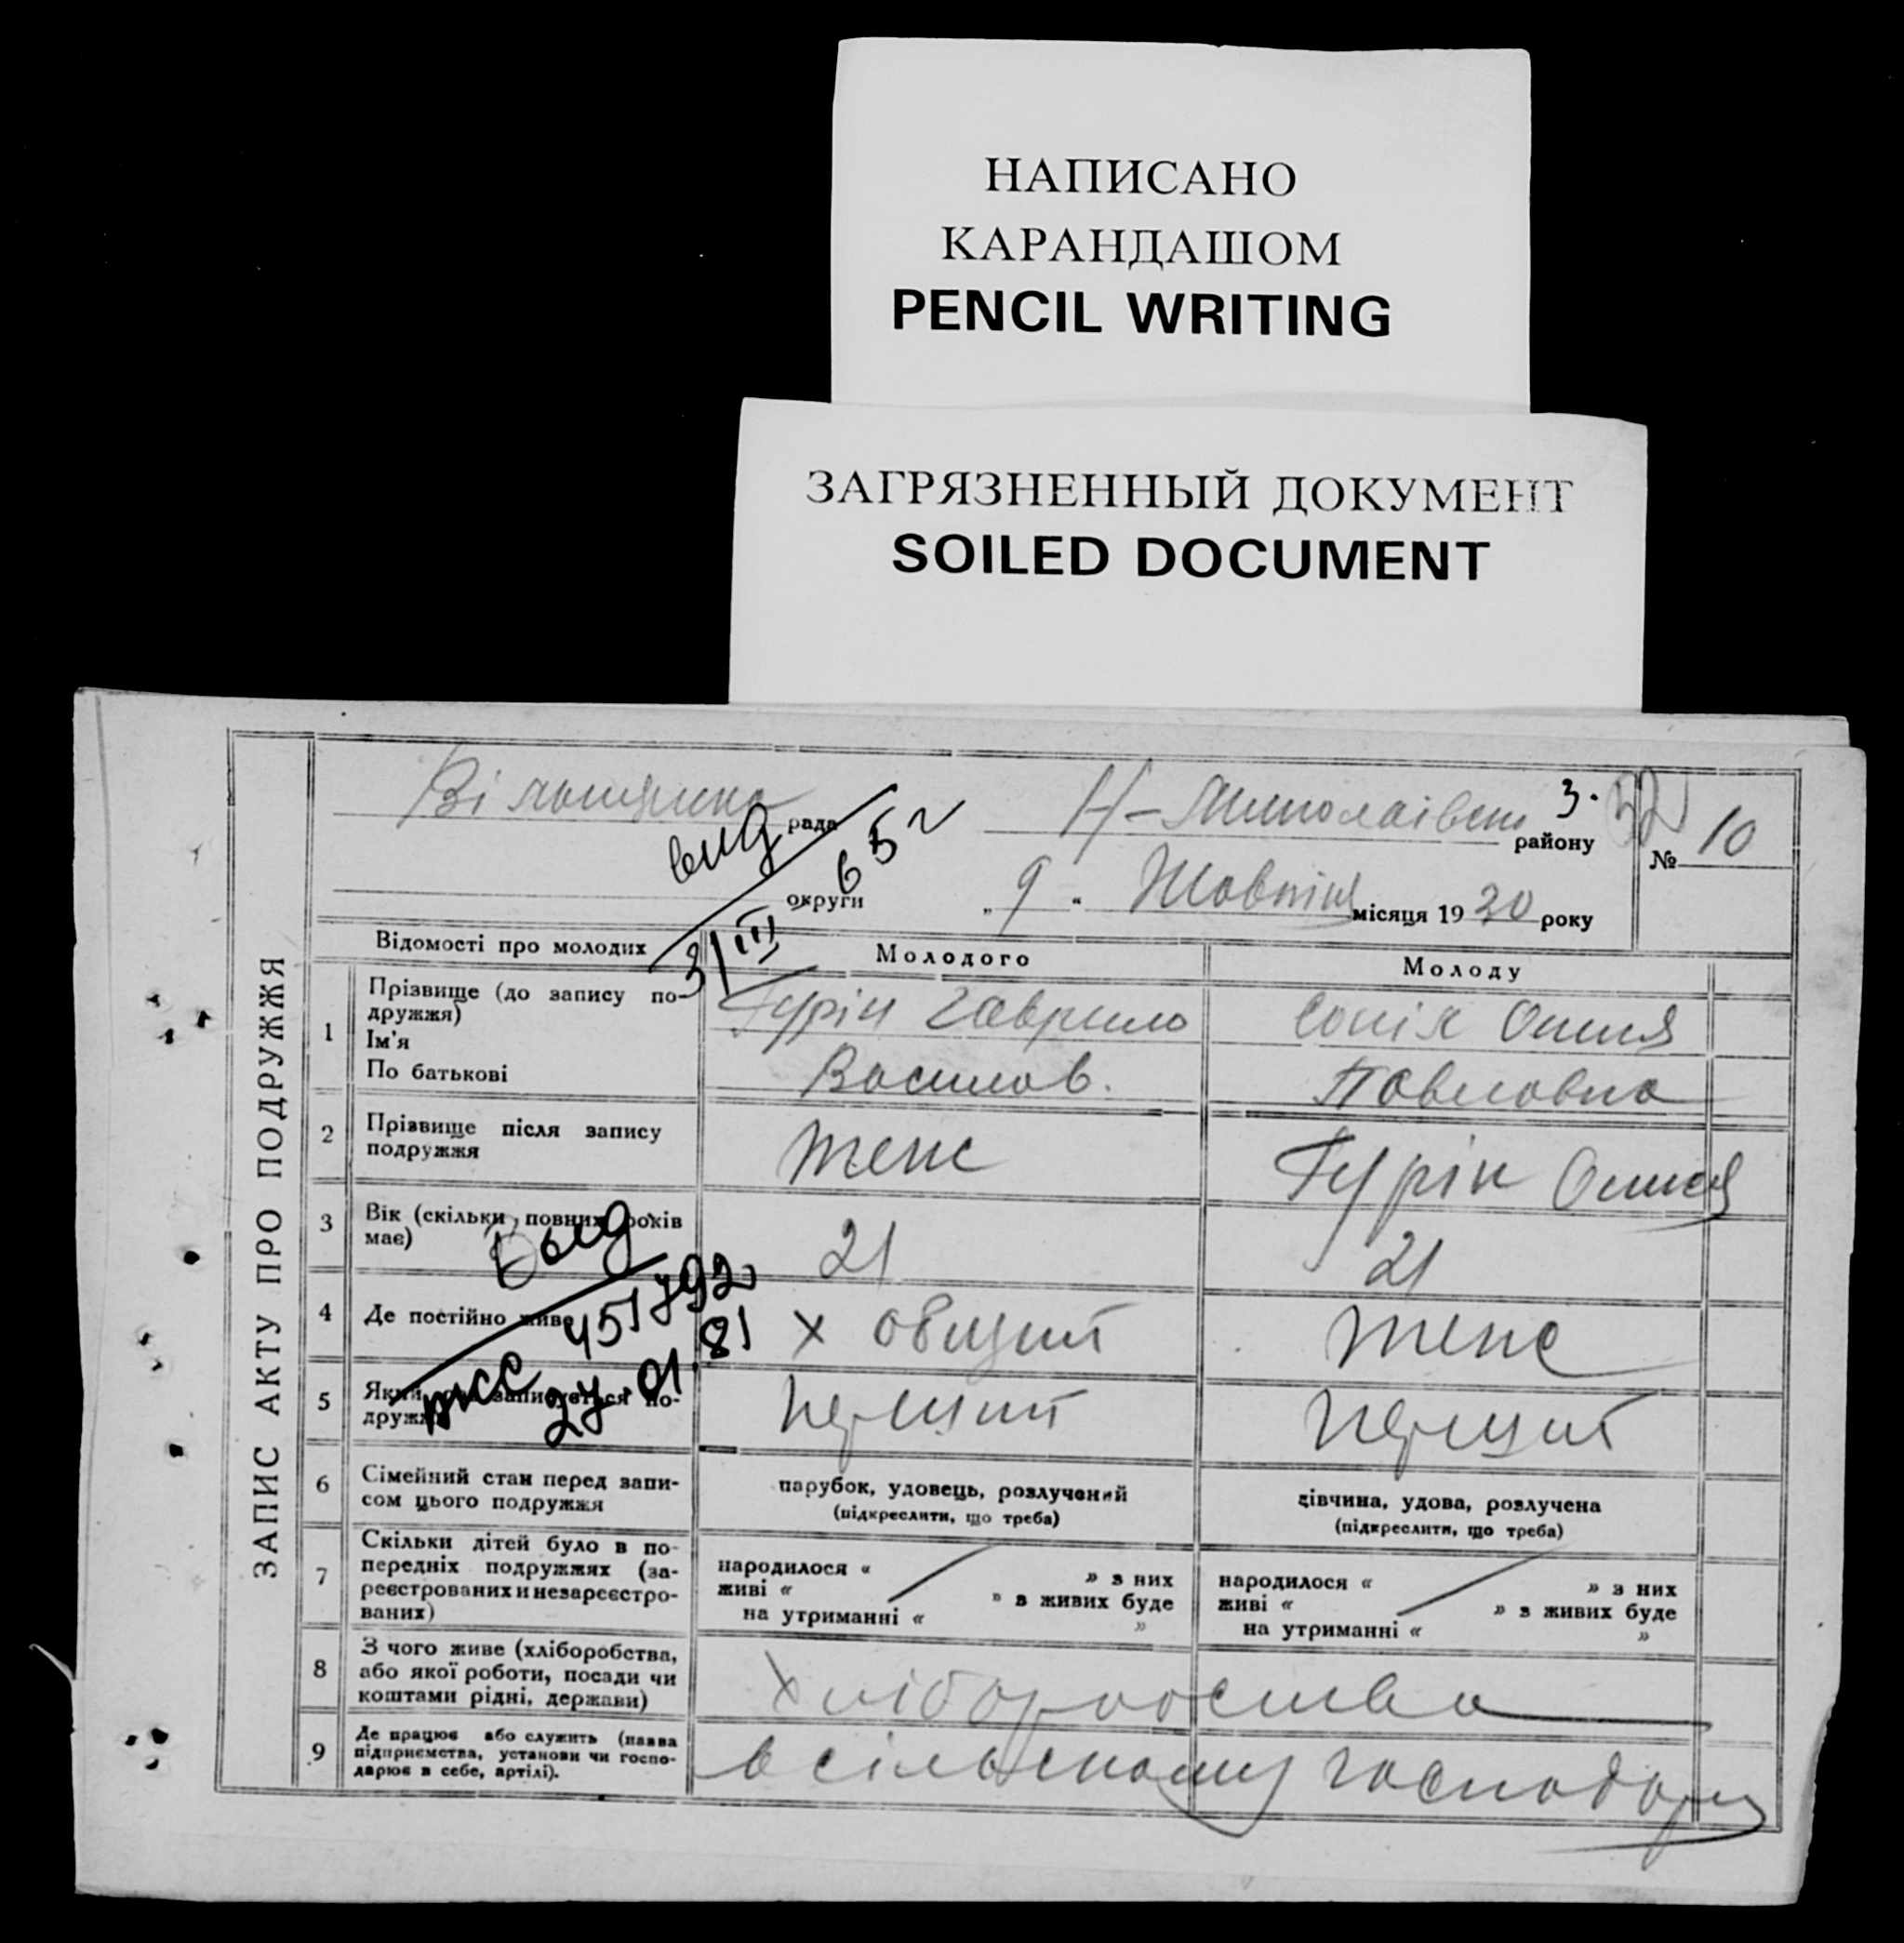 НАПИСАНО
КАРАНДАШОМ
PENCIL WRITING
ЗАГРЯЗНЕННЫЙ ДОКУМЕНТ
SOILED DOCUMENT
ЗАПИС АКТУ ПРО ПОДРУЖЖЯ
рада
Н-Миколаівськ
району
№ 10
округи
„ 9 “ Жовтня місяця 19 30 року
вид
31/III 65 г
Відомості про молодих
Молодого
Молоду
1
Прізвище (до запису по-
дружжя)
Ім'я
По батькові
Гурін Гаврило
Василов.
Оныся
Павловна
2
Прізвище після запису
подружжя
теже
Гурін Оныся
3
Вік (скільки повних років
має)
21
21
4
Де постійно живе
теже
Выд
451792
27.01.81
5
Який раз записується по-
дружжя
перший
перший
6
Сімейний стан перед запи-
сом цього подружжя
парубок, удовець, розлучений
(підкреслити, що треба)
дівчина, удова, розлучена
(підкреслити, що треба)
7
Скільки дітей було в по-
передніх подружжях (за-
реєстрованих и незареєстро-
ваних)
народилося « » з них
живі « » з живих буде
на утриманні « »
народилося « » з них
живі « » з живих буде
на утриманні « »
8
З чого живе (хліборобства,
або якої роботи, посади чи
коштами рідні, держави)
хліборобства
9
Де працює або служить (назва
підприємства, установи чи госпо-
дарює в себе, артілі).
в сільському господар